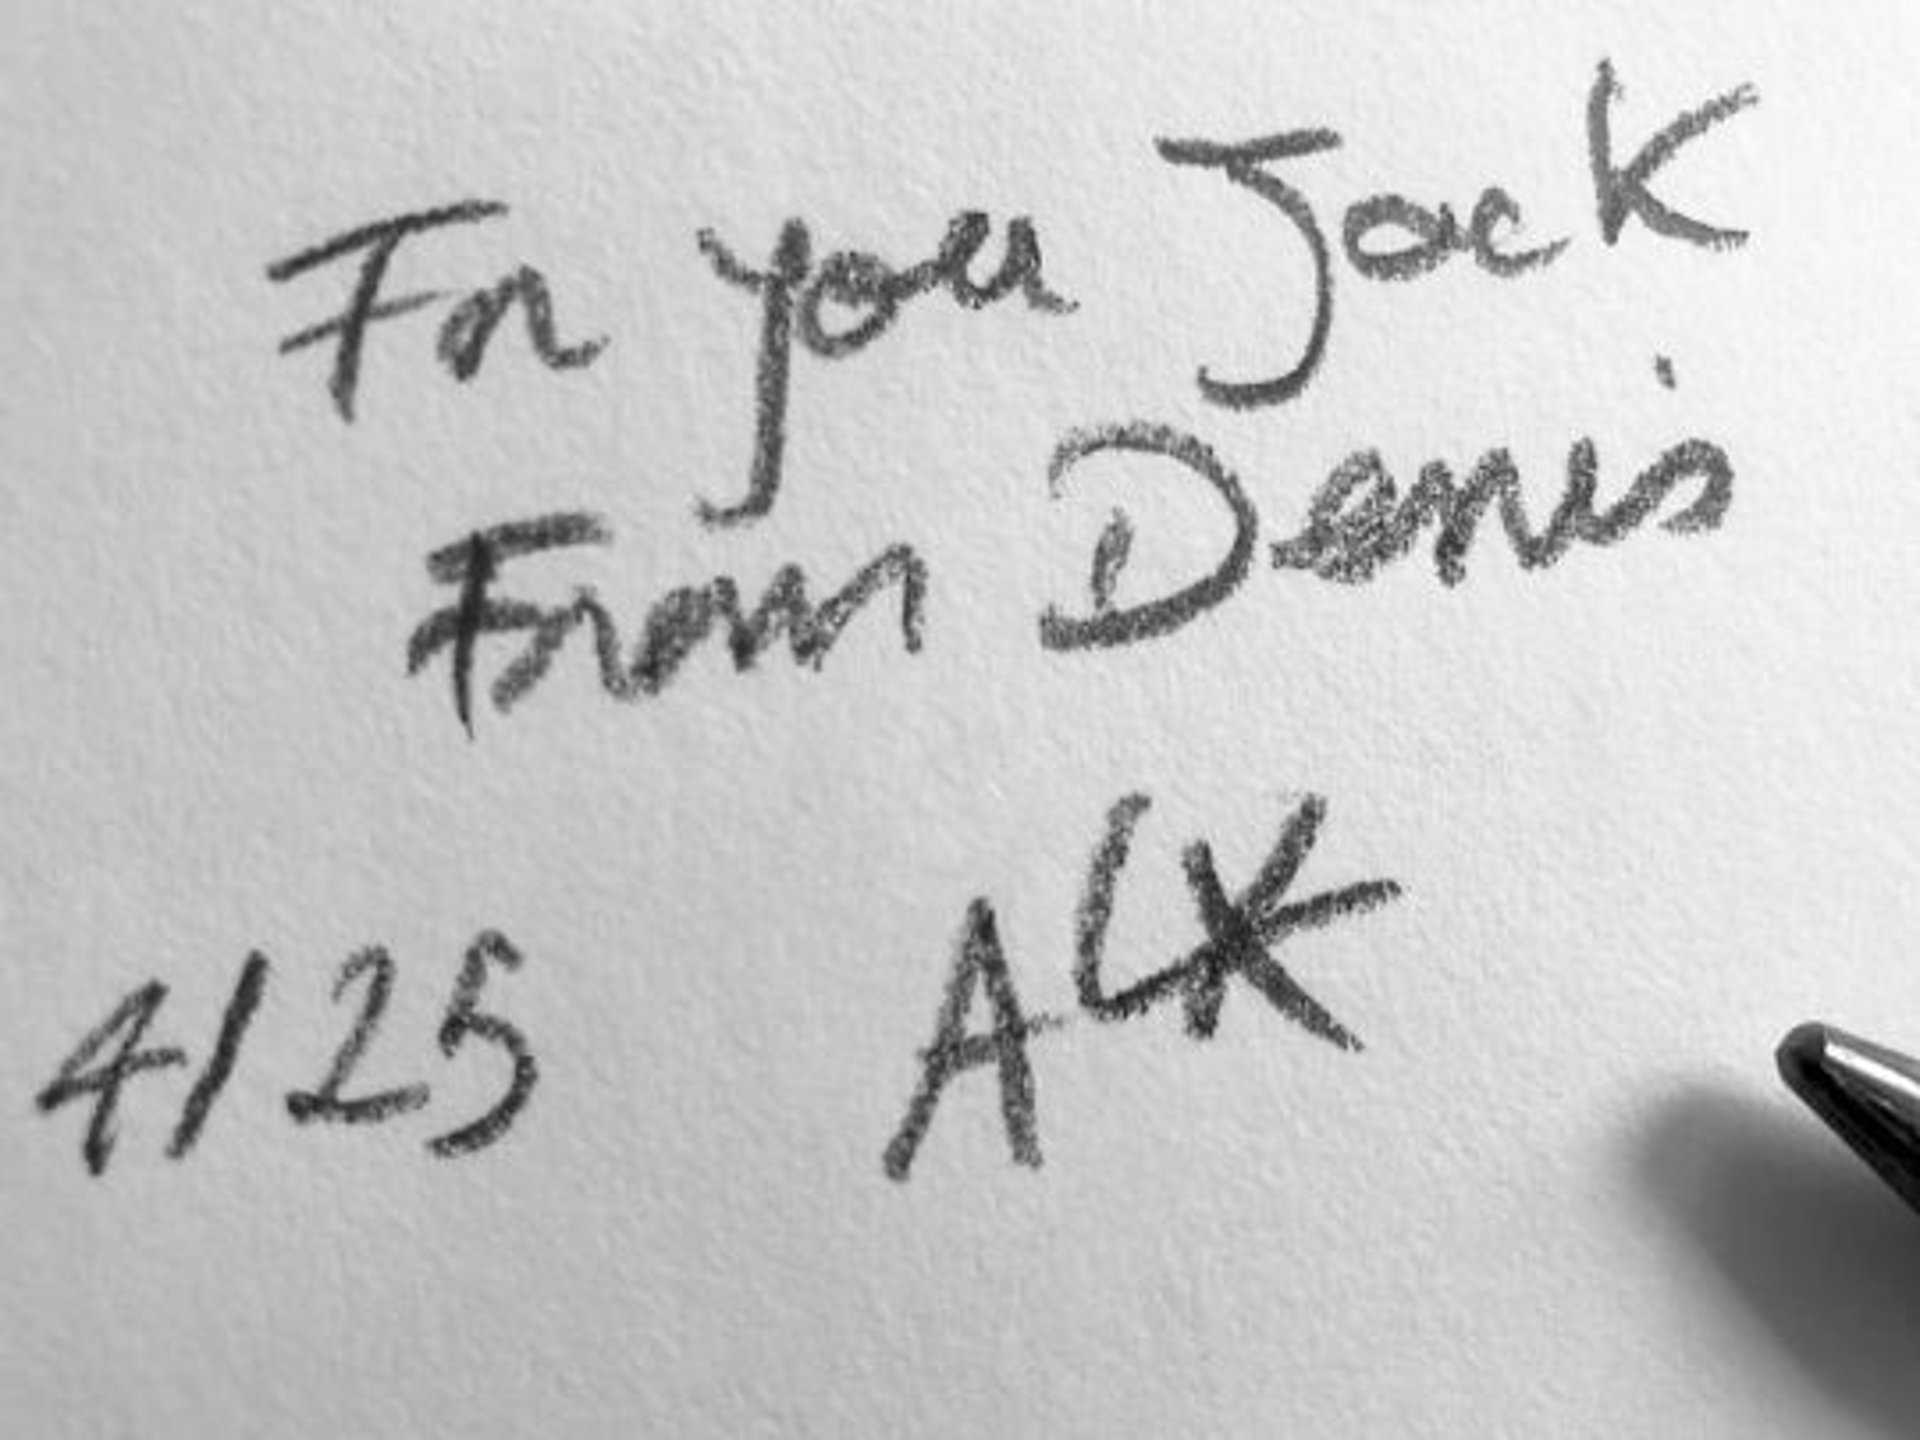 For you Jack
From Denis
4/25 ALK